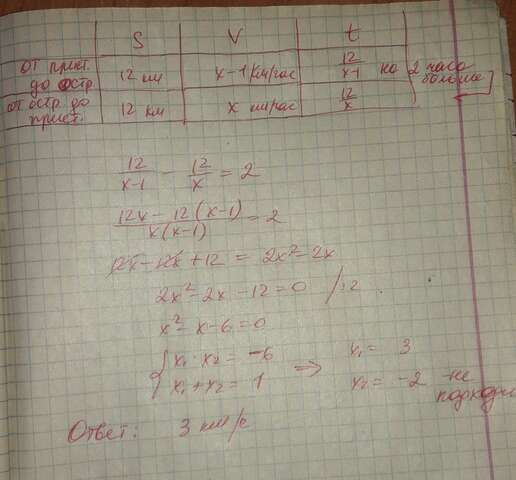 S V t
от прист. до остр. 12 км x-1 км/час 12/(x-1) на 2 часа больше
от остр. до прист. 12 км x км/час 12/x
12/(x-1) - 12/x = 2
(12x - 12(x-1))/(x(x-1)) = 2
12x - 12x + 12 = 2x² - 2x
2x² - 2x - 12 = 0 /:2
x² - x - 6 = 0
{ x₁ · x₂ = -6 ⇒ x₁ = 3
x₁ + x₂ = 1 x₂ = -2 -не подходи
Ответ: 3 км/ч